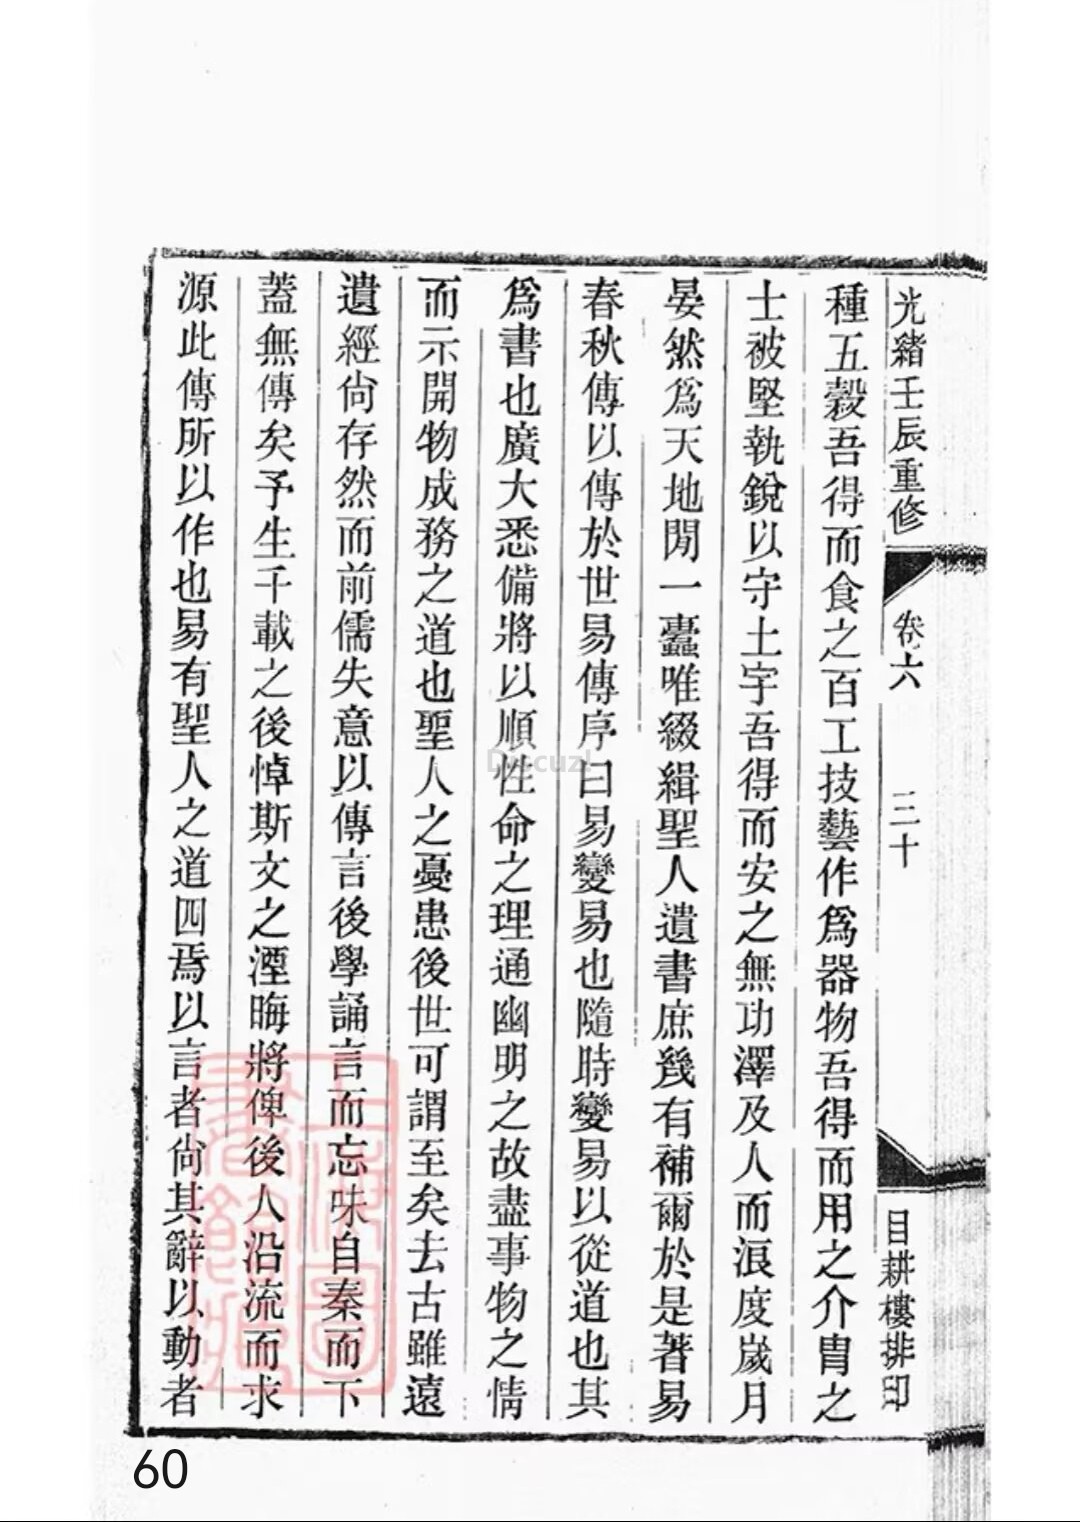 光緒壬辰重修
卷六
三十
目耕樓排印
種五穀吾得而食之百工技藝作爲器物吾得而用之介冑之
士被堅執銳以守土宇吾得而安之無功澤及人而浪度歲月
晏然爲天地閒一蠹唯綴緝聖人遺書庶幾有補爾於是著易
春秋傳以傳於世易傳序曰易變易也隨時變易以從道也其
爲書也廣大悉備將以順性命之理通幽明之故盡事物之情
而示開物成務之道也聖人之憂患後世可謂至矣去古雖遠
遺經尙存然而前儒失意以傳言後學誦言而忘味自秦而下
蓋無傳矣予生千載之後悼斯文之湮晦將俾後人沿流而求
源此傳所以作也易有聖人之道四焉以言者尙其辭以動者
Discuz!
60